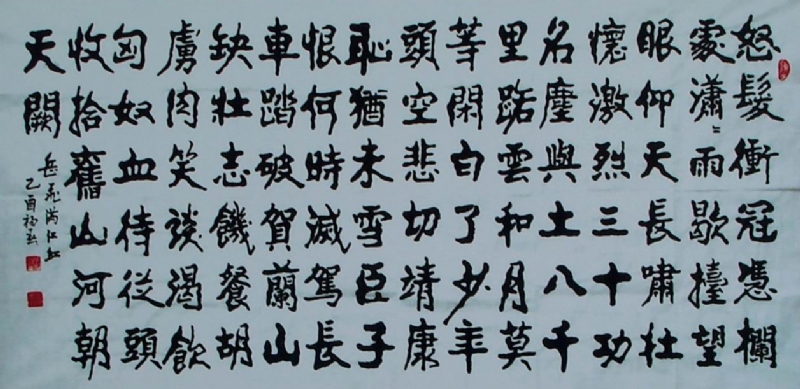 怒髮衝冠憑欄
處瀟〻雨歇擡望
眼仰天長嘯壯
懷激烈三十功
名塵與土八千
里路雲和月莫
等閑白了少年
頭空悲切靖康
恥猶未雪臣子
恨何時滅駕長
車踏破賀蘭山
缺壯志饑餐胡
虜肉笑談渴飲
匈奴血待從頭
收拾舊山河朝
天闕
岳飛滿江紅
乙酉